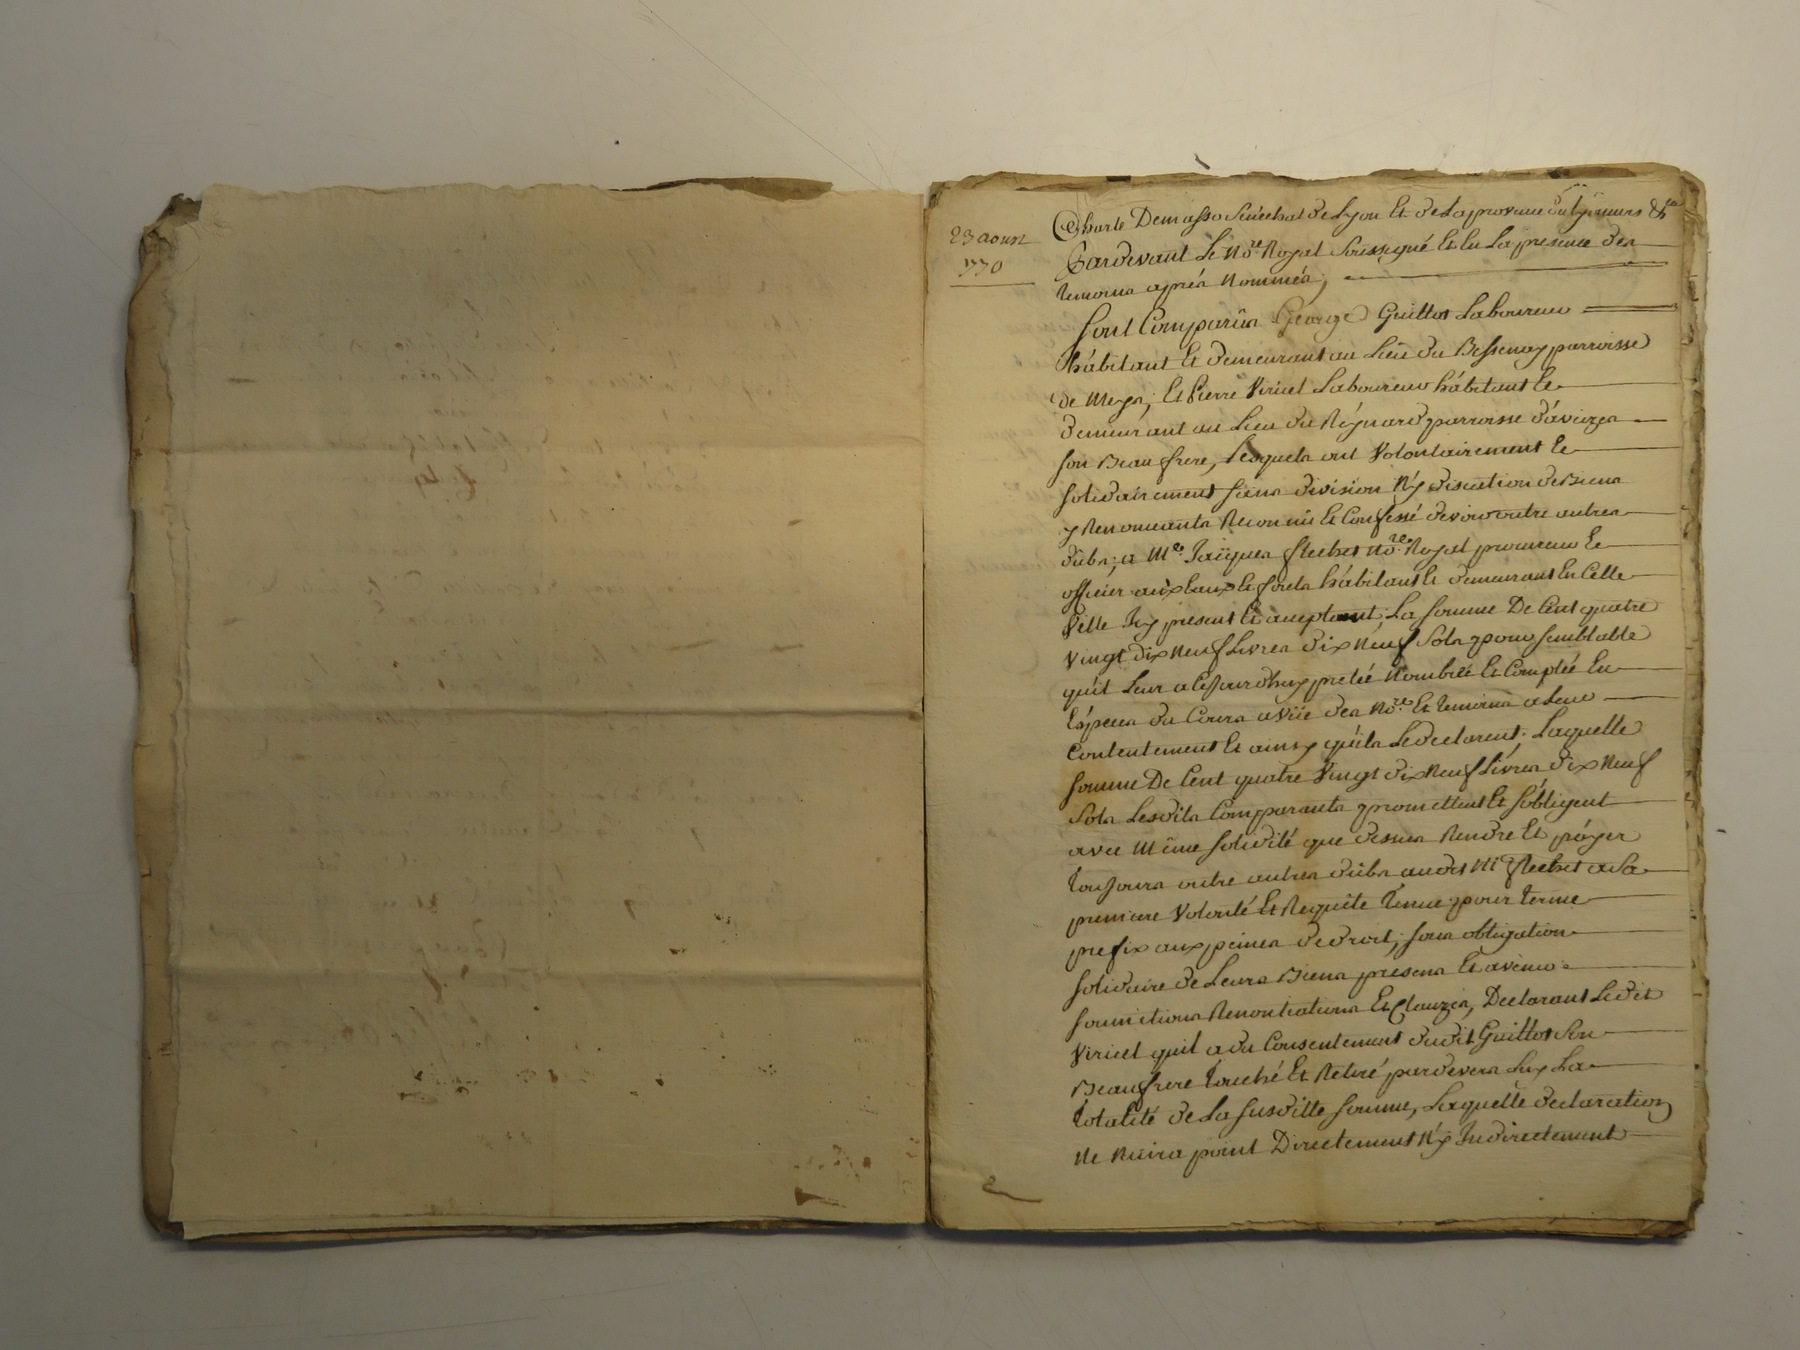 23 aoust
1770
Charle Demasso Senéchal de Lyon Et de La province du Lyonnois &ra
Pardevant Le No.re Royal Soussigné Et En La presence des
temoins aprés Nommés;
Sont Comparûs George Guillot Laboureur
hábitant Et demeurant au Lieu du Bessenay parroisse
de Meys; Et Pierre Viricel Laboureur hábitant Et
demeurant au Lieu du Régnard parroisse dáveizes
son Beaufrere, Lesquels ont Volontairement Et
solidairement sans division Ny discution de Biens
y Renonceants Reconnû Et Confessé devoir outre autres
dûbs; a Me. Jacques flechet No.re Royal procureur Et
officier aux Eaux Et forets hábitant Et demeurant En Cette
Ville Icy present Et acceptant, La somme De Cent quatre
Vingt dix Neuf Livres dix Neuf Sols pour semblable
qu'il Leur a Cejourdhuy pretée Nombrée Et Comptée En
Espéces du Cours a Vüe des No.re Et temoins a Leur
Contentement Et ainsy quils Le declarent: Laquelle
somme De Cent quatre Vingt dix Neuf Livres dix Neuf
Sols Lesdits Comparants promettent Et s'obligent
avec Même solidité que dessus Rendre Et páyer
toujours outre autres dûbs audit Me flechet a Sa
premiere Volonté Et Requête tenue pour terme
prefix aux peines de droit; sous obligation
solidaire de Leurs Biens presens Et avenir
soumitions Renontiations Et Clauzes, Declarant Ledit
Viricel quil a du Consentement dudit Guillot Son
Beaufrere touché Et Retiré pardevers Luy La
totalité de La susditte somme, Laquelle declaration
Ne Nuira point Directement Ny Indirectement